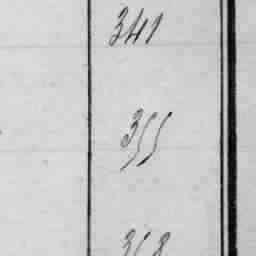 341
355
368